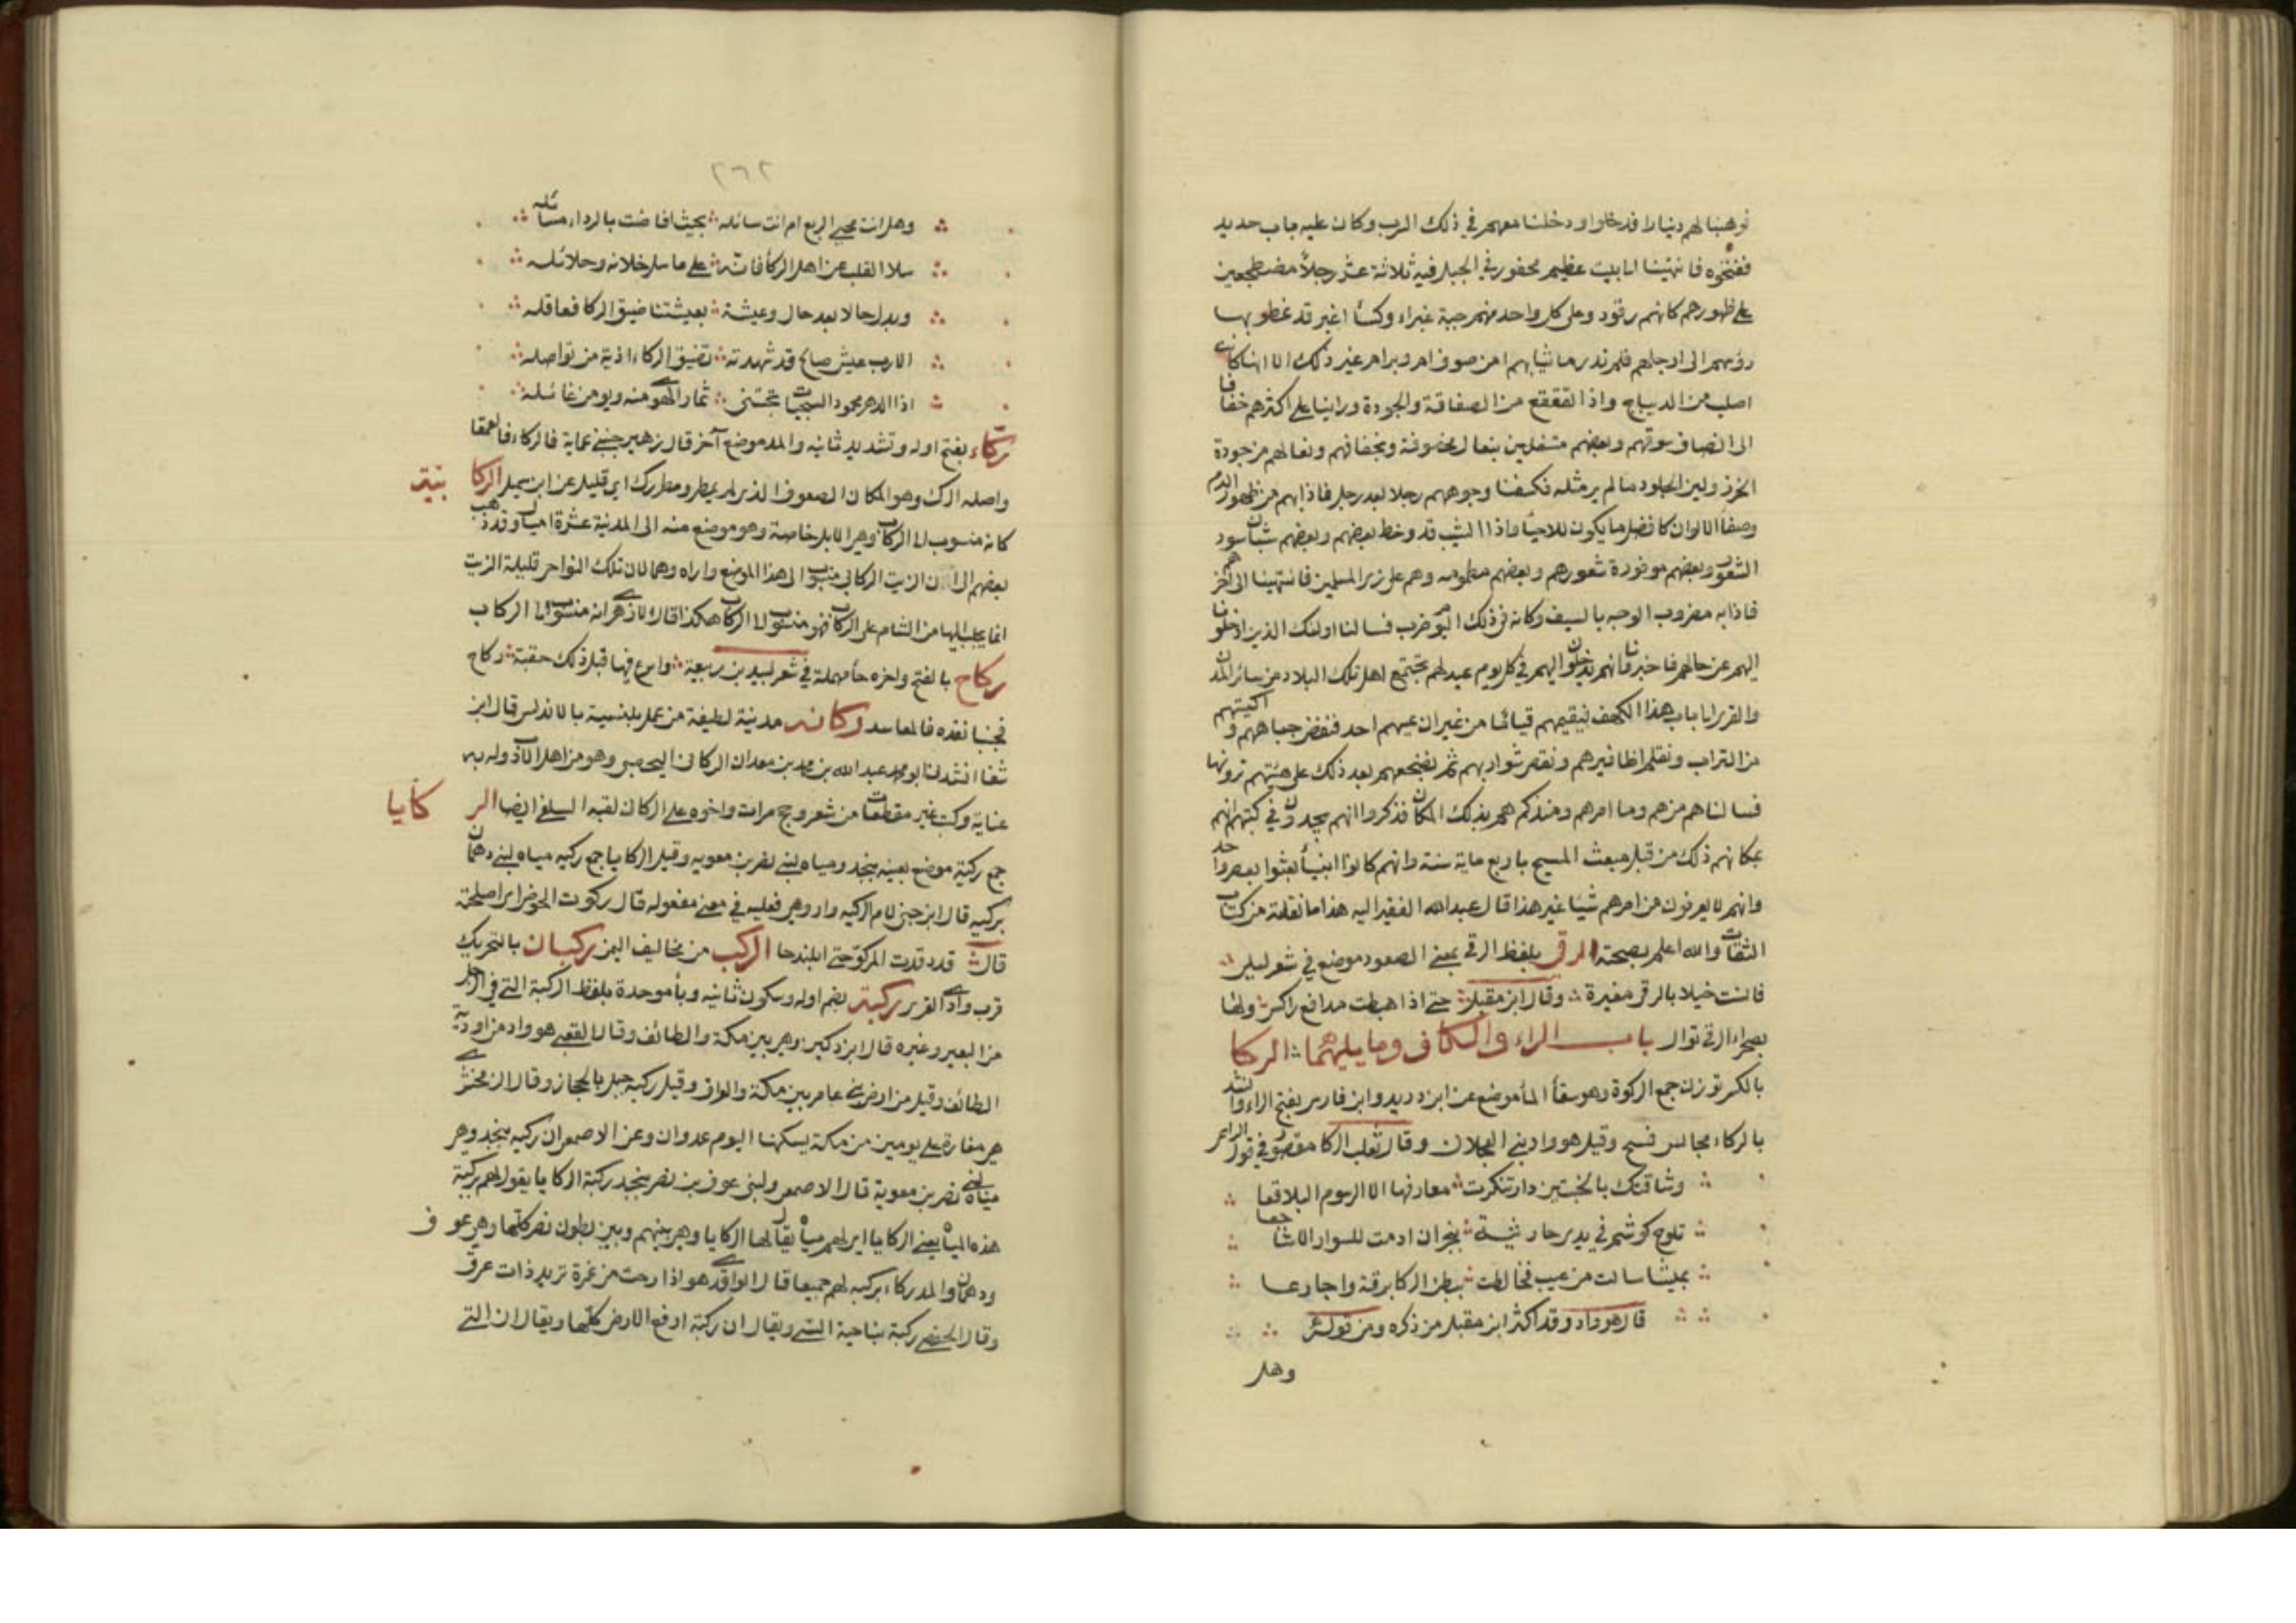 فوهبنا لهم دينارا فدخلوا ودخلنا معهم في ذلك السرب وكان عليه باب حديد
ففتحوه فانتهينا الى بيت عظيم محفور في الجبل فيه ثلاثة عشر رجلا مضطجعين
على ظهورهم كانهم رقود وعلى كل واحد منهم جبة غبراء وكسا اغبر قد غطوا بها
رؤسهم الى ارجلهم فلم ندر ما ثيابهم امن صوف ام وبر ام غير ذلك الا انها كانت
اصلب من الديباج واذا تقعقع من الصفاقة والجودة وراينا على اكثرهم خفافا
الى انصاف سوقهم وبعضهم منتعلين بنعال مخصوفة ونخفافهم ونعالهم من جودة
الخرز ولين الجلود ما لم ير مثله فكشفنا وجوههم رجلا بعد رجل فاذا بهم من ظهور الدم
وصفا الالوان كافضل ما يكون للاحيا واذا الشيب قد وخط بعضهم وبعضهم شبان سود
الشعور وبعضهم موفورة شعورهم وبعضهم مطمومه وهم على زي المسلمين فانتهينا الى اخرهم
فاذا به مضروب الوجه بالسيف وكانه في ذلك اليوم ضرب فسالنا اولئك الذين ادخلونا
اليهم عن حالهم فاخبرونا انهم يدخلون اليهم في كل يوم عيد لهم تجتمع اهل تلك البلاد من سائر المدن
والقرى الى باب هذا الكهف فيقيمهم قياما من غير ان يمسهم احد فننفض جبابهم واكسيتهم
من التراب ونقلم اظافيرهم ونقص شواربهم ثم نضجعهم بعد ذلك على هيئتهم ترونها
فسالناهم من هم وما امرهم ومنذ كم هم بذلك المكان فذكروا انهم يجدون في كتبهم انهم
بمكانهم ذلك من قبل مبعث المسيح باربع ماية سنة وانهم كانوا انبيا بعثوا بعصر واحد
وانهم لا يعرفون من امرهم شيا غير هذا قال عبد الله الفقير اليه هذا ما نقلته من كتاب
الثقات والله اعلم بصحته الرقى بلفظ الرقي بمعنى الصعود موضع في شعر ليلى
فانست خيلا بالرقي مغيرة وقال ابن مقبل حتى اذا هبطت مدافع راكس ولها
بصحراء الرقي توال باب الراء والكاف وما يليهما الركا
بالكسر توزن جمع الركوة وهو سقا الما موضع عن ابن دريد وابن فارس بفتح الراء وانشد
بالركاء مجالس فسح وقيل هو واد بنى العجلان وقال ثعلب الركا مقصور في قول الراعي
وشاقتك بالخبتين دار تنكرت معارفها الا الرسوم البلاقعا
تلوح كوشم في يدي حارثية بنجران ادمت للسوار الاشاجعا
بميثا سالت من عسيب فخالطت ببطن الركا برقة واجارعا
قال هو واد وقد اكثر ابن مقبل من ذكره ومن قوله
وهل
٢٦٢
وهل انت محيى الربع ام انت سائله بحيث افاضت بالرداء مسائله
سلا القلب عن اهل الركا فانه على ما سلا خلانه وحلائله
وبدل حالا بعد حال وعيشة بعيشتنا ضيق الركا فعاقله
الا رب عيش صالح قد شهدته بضيق الركاء اذ به من نواصله
اذا الدهر محمود السجيات تجتنى ثمار الهوى منه ويومن غائله
ركاء بفتح اوله وتشديد ثانيه والمد موضع آخر قال زهير جنبى عماية فالركاء فالعمقا
واصله الرك وهو المكان الضعوف الذي لم يمطر ومطر رك اي قليل عن ابن شميل الركا بية
كانه منسوب الى الركاب وهي الابل خاصة وهو موضع منه الى المدينة عشرة اميال وقد ذهب
بعضهم الى ان الزيت الركابي منسوب الى هذا الموضع واراه وهما لان تلك النواحى قليلة الزيت
انما يجلب اليها من الشام على الركاب فهو منسوب الى الركاب هكذا قال الازهرى انه منسوب الى الركاب
ركاح بالفتح واخره حا مهملة في شعر لبيد بن ربيعة واسرع فيها قبل ذلك حقبة ركاح
فجنبا نقده فالمغاسد وكانه مدينة لطيفة من عمل بلنسية بالاندلس قال ابن
شفا انشدنا ابو محمد عبد الله بن محمد بن معدان الركانى اليحصبي وهو من اهل الادب وله به
عناية وكتب غير مقطعات من شعر وحج مرات واخوه على الركانى لقيه السلفى ايضا الر كايا
جمع ركية موضع بعينه بنجد ومياه لبنى نصر بن معوية وقيل الركايا جمع ركيه مياه لبنى دهمان
بركيه قال ابن جنى لام الركيه واو وهي فعيله في معنى مفعوله قال ركوت الحوض اي اصلحته
قال قد ركدت المركو حتى ابلندحا الركب من مخاليف اليمن ركبان بالتحريك
قرب وادى القرى ركبة بضم اوله وسكون ثانيه وبا موحدة بلفظ الركبة التى في الرجل
من البعير وغيره قال ابن دكير وهي بين مكة والطائف وقال القعنبى هو واد من اودية
الطائف وقيل من ارض بنى عامر بين مكة والعراق وقيل ركبه جبل بالحجاز وقال الزمخشرى
هي مفازة على يومين من مكة يسكنها اليوم عدوان وعن الاصمعى ان ركبه بنجد وهي
مياه لبنى نصر بن معوية قال الاصمعى ولبنى عوف بن نصر بنجد ركبة الركايا يقول لهم بركبة
هذه المياه يعنى الركايا اي لهم مياه يقال لها الركايا وهي بينهم وبين بطون نصر كلها وهي عوف
ودهمان والمدركاء بركبه لهم جميعا قال الواقدى هو اذا رحت من غمرة تريد ذات عرق
وقال الحفصى ركبة بناحية السى ويقال ان ركبة ارفع الارض كلها ويقال ان التى